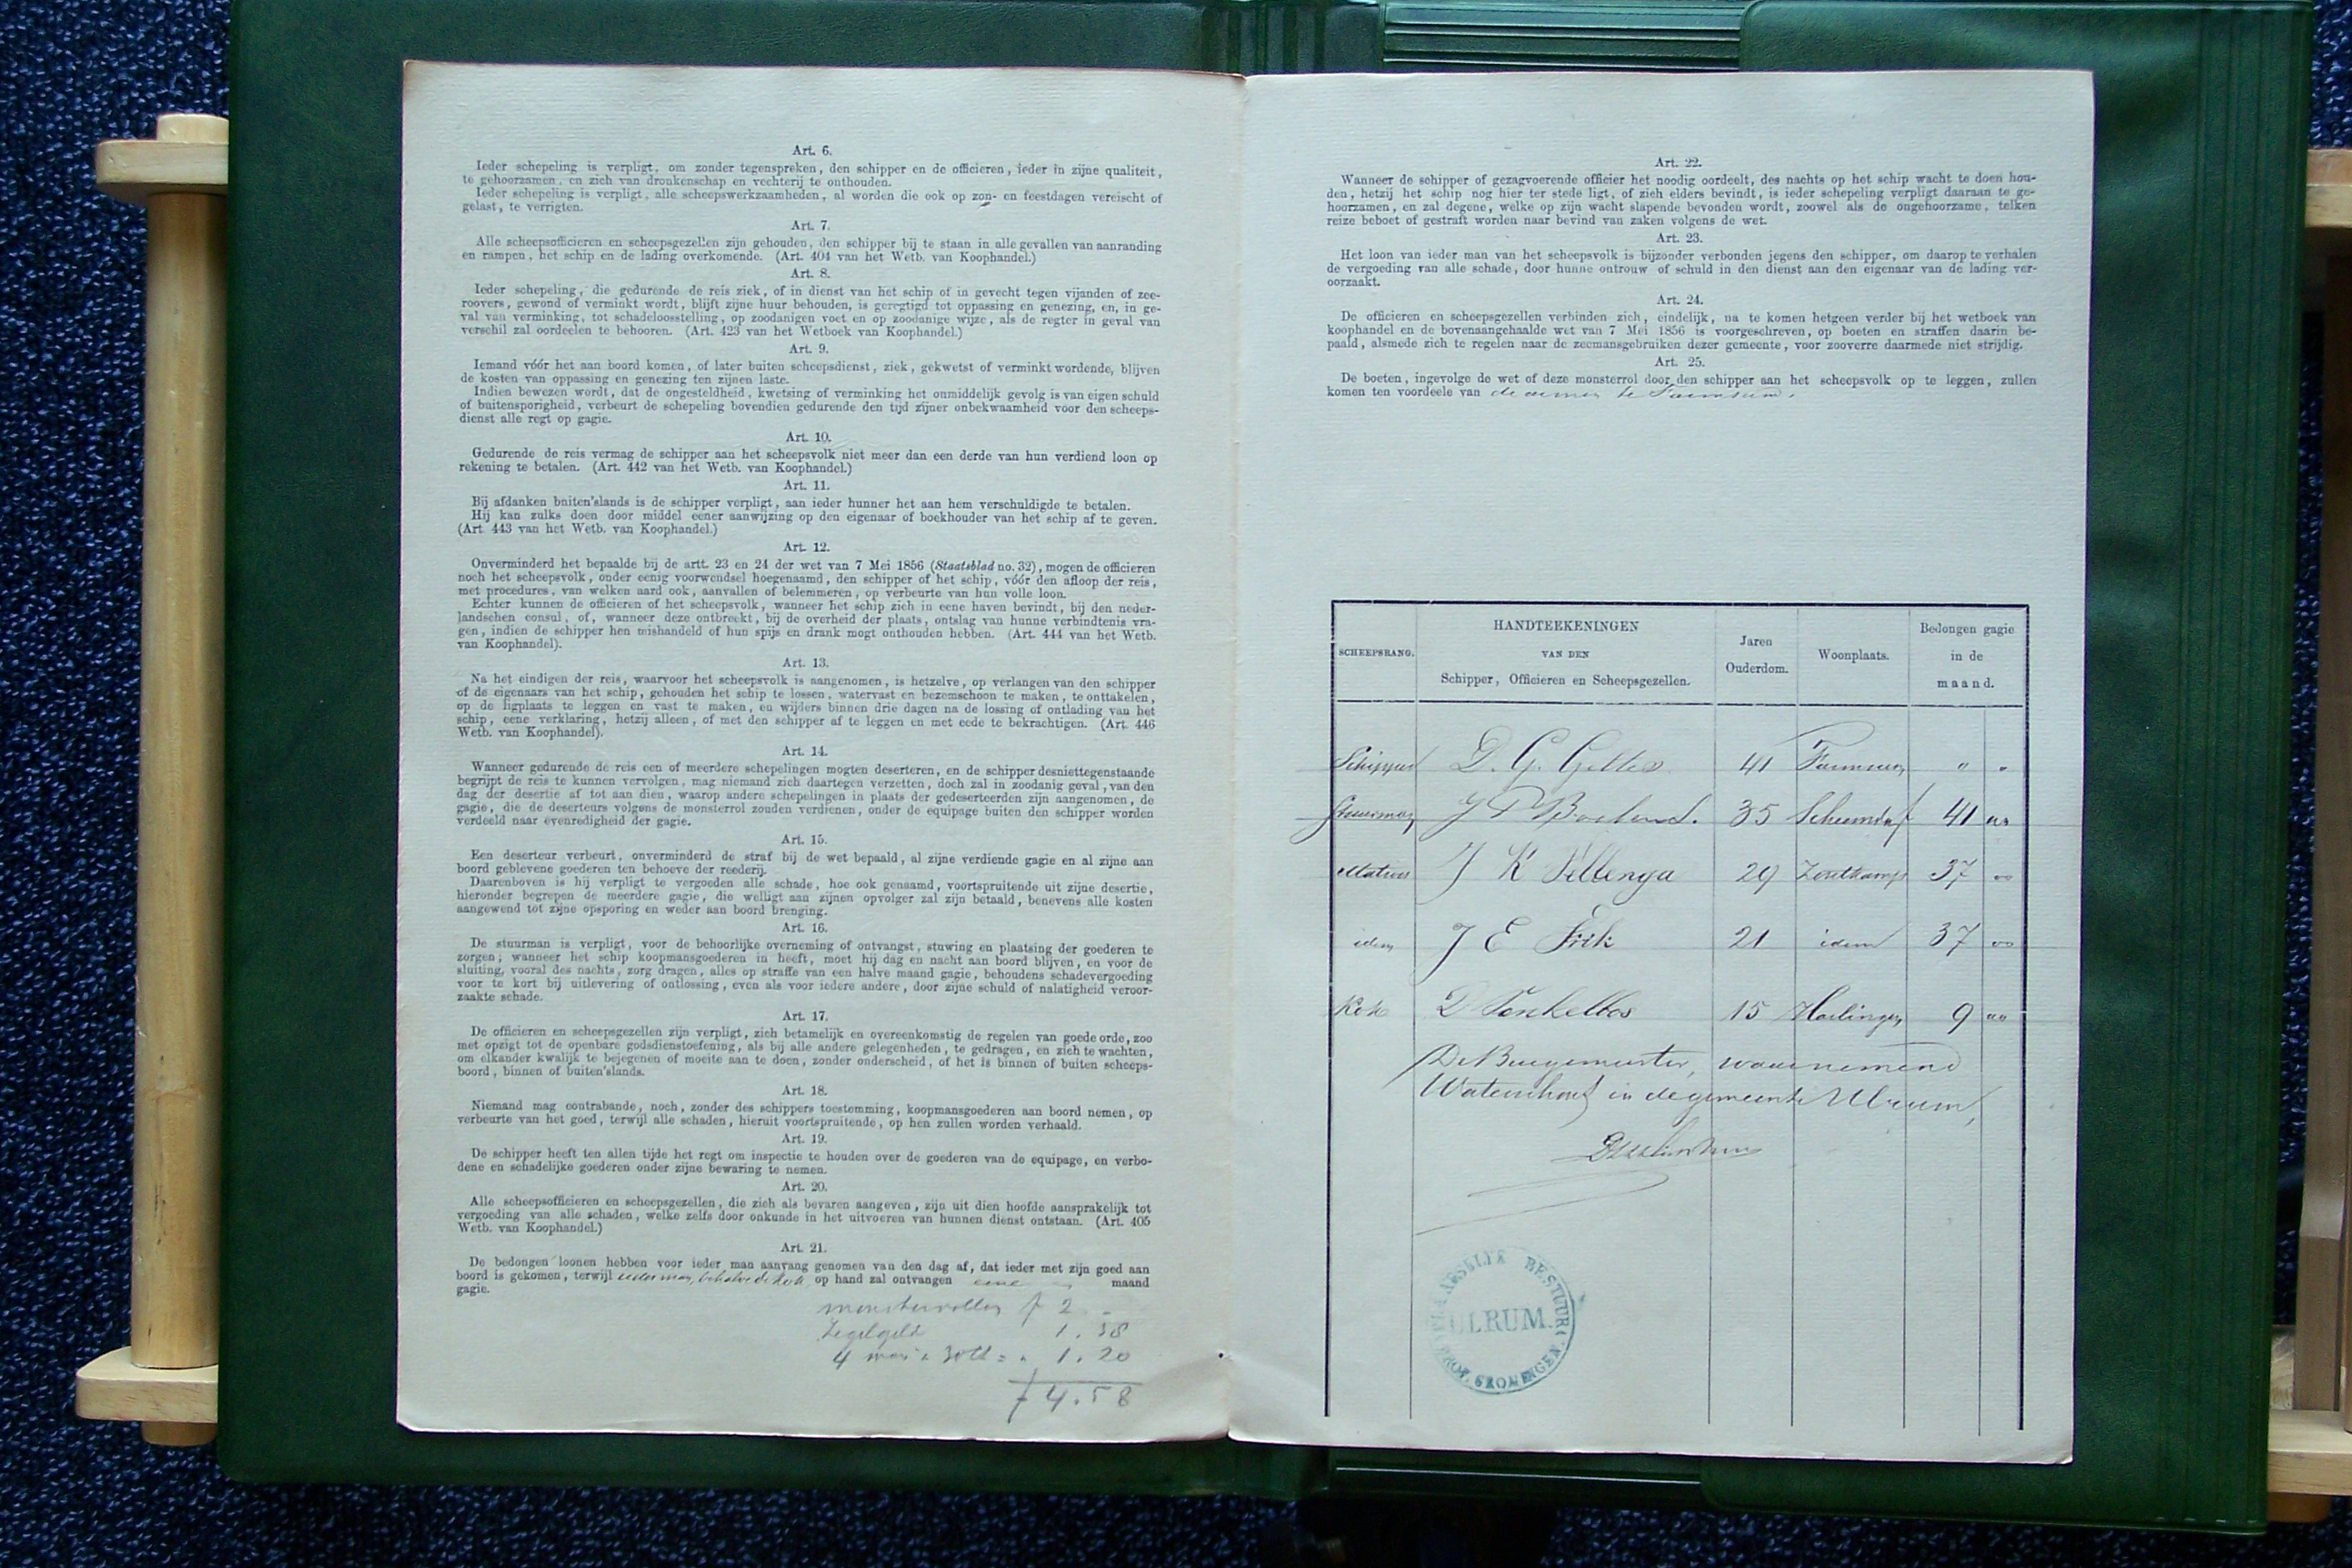 Art. 6.
Ieder schepeling is verpligt, om zonder tegenspreken, den schipper en de officieren, ieder in zijne qualiteit,
te gehoorzamen, en zich van dronkenschap en vechterij te onthouden.
Ieder schepeling is verpligt, alle scheepswerkzaamheden, al worden die ook op zon- en feestdagen vereischt of
gelast, te verrigten.
Art. 7.
Alle scheepsofficieren en scheepsgezellen zijn gehouden, den schipper bij te staan in alle gevallen van aanranding
en rampen, het schip en de lading overkomende. (Art. 404 van het Wetb. van Koophandel.)
Art. 8.
Ieder schepeling, die gedurende de reis ziek, of in dienst van het schip of in gevecht tegen vijanden of zee-
roovers, gewond of verminkt wordt, blijft zijne huur behouden, is geregtigd tot oppassing en genezing, en, in ge-
val van verminking, tot schadeloosstelling, op zoodanigen voet en op zoodanige wijze, als de regter in geval van
verschil zal oordeelen te behooren. (Art. 423 van het Wetboek van Koophandel.)
Art. 9.
Iemand vóór het aan boord komen, of later buiten scheepsdienst, ziek, gekwetst of verminkt wordende, blijven
de kosten van oppassing en genezing ten zijnen laste.
Indien bewezen wordt, dat de ongesteldheid, kwetsing of verminking het onmiddelijk gevolg is van eigen schuld
of buitensporigheid, verbeurt de schepeling bovendien gedurende den tijd zijner onbekwaamheid voor den scheeps-
dienst alle regt op gagie.
Art. 10.
Gedurende de reis vermag de schipper aan het scheepsvolk niet meer dan een derde van hun verdiend loon op
rekening te betalen. (Art. 442 van het Wetb. van Koophandel.)
Art. 11.
Bij afdanken buiten'slands is de schipper verpligt, aan ieder hunner het aan hem verschuldigde te betalen.
Hij kan zulks doen door middel eener aanwijzing op den eigenaar of boekhouder van het schip af te geven.
(Art. 443 van het Wetb. van Koophandel.)
Art. 12.
Onverminderd het bepaalde bij de artt. 23 en 24 der wet van 7 Mei 1856 (Staatsblad no. 32), mogen de officieren
noch het scheepsvolk, onder eenig voorwendsel hoegenaamd, den schipper of het schip, vóór den afloop der reis,
met procedures, van welken aard ook, aanvallen of belemmeren, op verbeurte van hun volle loon.
Echter kunnen de officieren of het scheepsvolk, wanneer het schip zich in eene haven bevindt, bij den neder-
landschen consul, of, wanneer deze ontbreekt, bij de overheid der plaats, ontslag van hunne verbindtenis vra-
gen, indien de schipper hen mishandeld of hun spijs en drank mogt onthouden hebben. (Art. 444 van het Wetb.
van Koophandel).
Art. 13.
Na het eindigen der reis, waarvoor het scheepsvolk is aangenomen, is hetzelve, op verlangen van den schipper
of de eigenaars van het schip, gehouden het schip te lossen, watervast en bezemschoon te maken, te onttakelen,
op de ligplaats te leggen en vast te maken, en wijders binnen drie dagen na de lossing of ontlading van het
schip, eene verklaring, hetzij alleen, of met den schipper af te leggen en met eede te bekrachtigen. (Art. 446
Wetb. van Koophandel).
Art. 14.
Wanneer gedurende de reis een of meerdere schepelingen mogten deserteren, en de schipper desniettegenstaande
begrijpt de reis te kunnen vervolgen, mag niemand zich daartegen verzetten, doch zal in zoodanig geval, van den
dag der desertie af tot aan dien, waarop andere schepelingen in plaats der gedeserteerden zijn aangenomen, de
gagie, die de deserteurs volgens de monsterrol zouden verdienen, onder de equipage buiten den schipper worden
verdeeld naar evenredigheid der gagie.
Art. 15.
Een deserteur verbeurt, onverminderd de straf bij de wet bepaald, al zijne verdiende gagie en al zijne aan
boord geblevene goederen ten behoeve der reederij.
Daarenboven is hij verpligt te vergoeden alle schade, hoe ook genaamd, voortspruitende uit zijne desertie,
hieronder begrepen de meerdere gagie, die welligt aan zijnen opvolger zal zijn betaald, benevens alle kosten
aangewend tot zijne opsporing en weder aan boord brenging.
Art. 16.
De stuurman is verpligt, voor de behoorlijke overneming of ontvangst, stuwing en plaatsing der goederen te
zorgen; wanneer het schip koopmansgoederen in heeft, moet hij dag en nacht aan boord blijven, en voor de
sluiting, vooral des nachts, zorg dragen, alles op straffe van een halve maand gagie, behoudens schadevergoeding
voor te kort bij uitlevering of ontlossing, even als voor iedere andere, door zijne schuld of nalatigheid veroor-
zaakte schade.
Art. 17.
De officieren en scheepsgezellen zijn verpligt, zich betamelijk en overeenkomstig de regelen van goede orde, zoo
met opzigt tot de openbare godsdienstoefening, als bij alle andere gelegenheden, te gedragen, en zich te wachten,
om elkander kwalijk te bejegenen of moeite aan te doen, zonder onderscheid, of het is binnen of buiten scheeps-
boord, binnen of buiten'slands.
Art. 18.
Niemand mag contrabande, noch, zonder des schippers toestemming, koopmansgoederen aan boord nemen, op
verbeurte van het goed, terwijl alle schaden, hieruit voortspruitende, op hen zullen worden verhaald.
Art. 19.
De schipper heeft ten allen tijde het regt om inspectie te houden over de goederen van de equipage, en verbo-
dene en schadelijke goederen onder zijne bewaring te nemen.
Art. 20.
Alle scheepsofficieren en scheepsgezellen, die zich als bevaren aangeven, zijn uit dien hoofde aansprakelijk tot
vergoeding van alle schaden, welke zelfs door onkunde in het uitvoeren van hunnen dienst ontstaan. (Art. 405
Wetb. van Koophandel.)
Art. 21.
De bedongen loonen hebben voor ieder man aanvang genomen van den dag af, dat ieder met zijn goed aan
boord is gekomen, terwijl ieder man, behalve de kok op hand zal ontvangen eene maand
gagie.
monsterrollen f 2 . -
Zegelgeld 1.38
4 man a 30 ct = " 1.20
f 4.58
Art. 22.
Wanneer de schipper of gezagvoerende officier het noodig oordeelt, des nachts op het schip wacht te doen hou-
den, hetzij het schip nog hier ter stede ligt, of zich elders bevindt, is ieder schepeling verpligt daaraan te ge-
hoorzamen, en zal degene, welke op zijn wacht slapende bevonden wordt, zoowel als de ongehoorzame, telken
reize beboet of gestraft worden naar bevind van zaken volgens de wet.
Art. 23.
Het loon van ieder man van het scheepsvolk is bijzonder verbonden jegens den schipper, om daarop te verhalen
de vergoeding van alle schade, door hunne ontrouw of schuld in den dienst aan den eigenaar van de lading ver-
oorzaakt.
Art. 24.
De officieren en scheepsgezellen verbinden zich, eindelijk, na te komen hetgeen verder bij het wetboek van
koophandel en de bovenaangehaalde wet van 7 Mei 1856 is voorgeschreven, op boeten en straffen daarin be-
paald, alsmede zich te regelen naar de zeemansgebruiken dezer gemeente, voor zooverre daarmede niet strijdig.
Art. 25.
De boeten, ingevolge de wet of deze monsterrol door den schipper aan het scheepsvolk op te leggen, zullen
komen ten voordeele van de armen te Farmsum.
SCHEEPSRANG. HANDTEEKENINGEN VAN DEN Schipper, Officieren en Scheepsgezellen. Jaren Ouderdom. Woonplaats. Bedongen gagie in de maand.
Schipper D. G. Gelles 41 Farmsum " "
Stuurman 35 Scheemda 41 00
Matroos J K 29 Zoutkamp 37 00
idem J E Frik 21 idem 37 00
Kok D 15 Harlingen 9 00
De Burgemeester, waarnemend
Waterschout in de gemeente Ulrum,
PLAATSELIJK BESTUUR
ULRUM.
PROV. GRONINGEN.